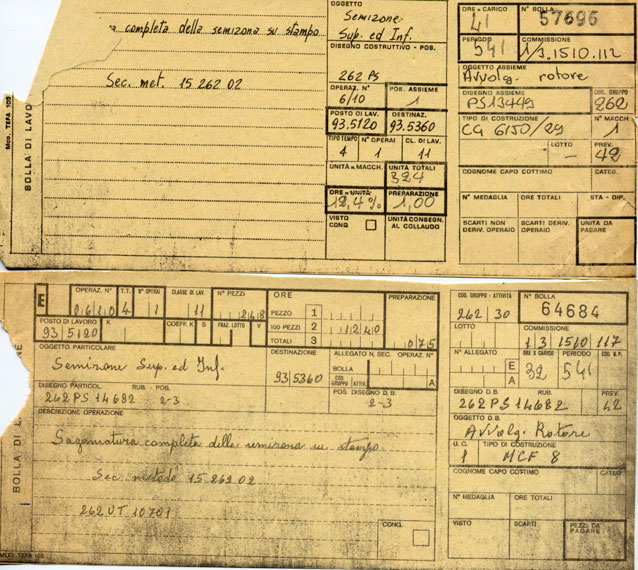 a completa della semizona su stampo
Sec. met. 15 262 02
Mod. TEFA 103
BOLLA DI LAVO
OGGETTO
Semizone
Sup. ed Inf.
DISEGNO COSTRUTTIVO - POS.
262 PS
OPERAZ. N° POS. ASSIEME
6/10 1
POSTO DI LAV. DESTINAZ.
93.5120 93.5360
TIPO TEMPO N° OPERAI CL. DI LAV.
4 1 11
UNITÀ n. MACCH. UNITÀ TOTALI
324
ORE - UNITÀ: PREPARAZIONE
12,4% 1,00
VISTO CONQ UNITÀ CONSEGN. AL COLLAUDO
ORE - CARICO N° BOLLA
41 57696
PERIODO COMMISSIONE
541 1/3.1510.112
OGGETTO ASSIEME
Avvolg. rotore
DISEGNO ASSIEME COD. GRUPPO
PS13449 262
TIPO DI COSTRUZIONE N° MACCH.
CG 6150/29 1
LOTTO PREV.
– 42
COGNOME CAPO COTTIMO CATEG.
N° MEDAGLIA ORE TOTALI STA - DIP.
SCARTI NON DERIV. OPERAIO SCARTI DERIV. OPERAIO UNITÀ DA PAGARE
E OPERAZ. N° T.T. N° OPERAI CLASSE DI LAV. N° PEZZI
0610 4 1 11 248
POSTO DI LAVORO K COEFF. K S FRAZ. LOTTO V
93 5120
ORE PREPARAZIONE
PEZZO 1
100 PEZZI 2 1240
TOTALI 3 075
OGGETTO PARTICOLARE
Semizone Sup. ed Inf.
DESTINAZIONE
93 5360
ALLEGATO N. SEC. OPERAZ. N°
BOLLA
COD. GRUPPO/ATTIV. A
DISEGNO PARTICOL. RUB. - POS. POS. DISEGNO D.B.
262 PS 14682 2-3 2-3
DESCRIZIONE OPERAZIONE
Sagomatura completa della semizona su stampo
Sec. metodo 15 262 02
262 UT 10781
CONQ.
BOLLA DI L
MOD. TEFA 103
COD. GRUPPO - ATTIVITÀ N° BOLLA
262 30 64684
LOTTO COMMISSIONE
1 3 1510 117
N° ALLEGATO E A ORE A CARICO PERIODO COD. N.P.
32 541
DISEGNO D.B. RUB. PREV.
262 PS 14682 42
OGGETTO D.B.
Avvolg. Rotore
U.C. TIPO DI COSTRUZIONE
1 MCF 8
COGNOME CAPO COTTIMO CATEG
N° MEDAGLIA ORE TOTALI
VISTO SCARTI PEZZI DA PAGARE